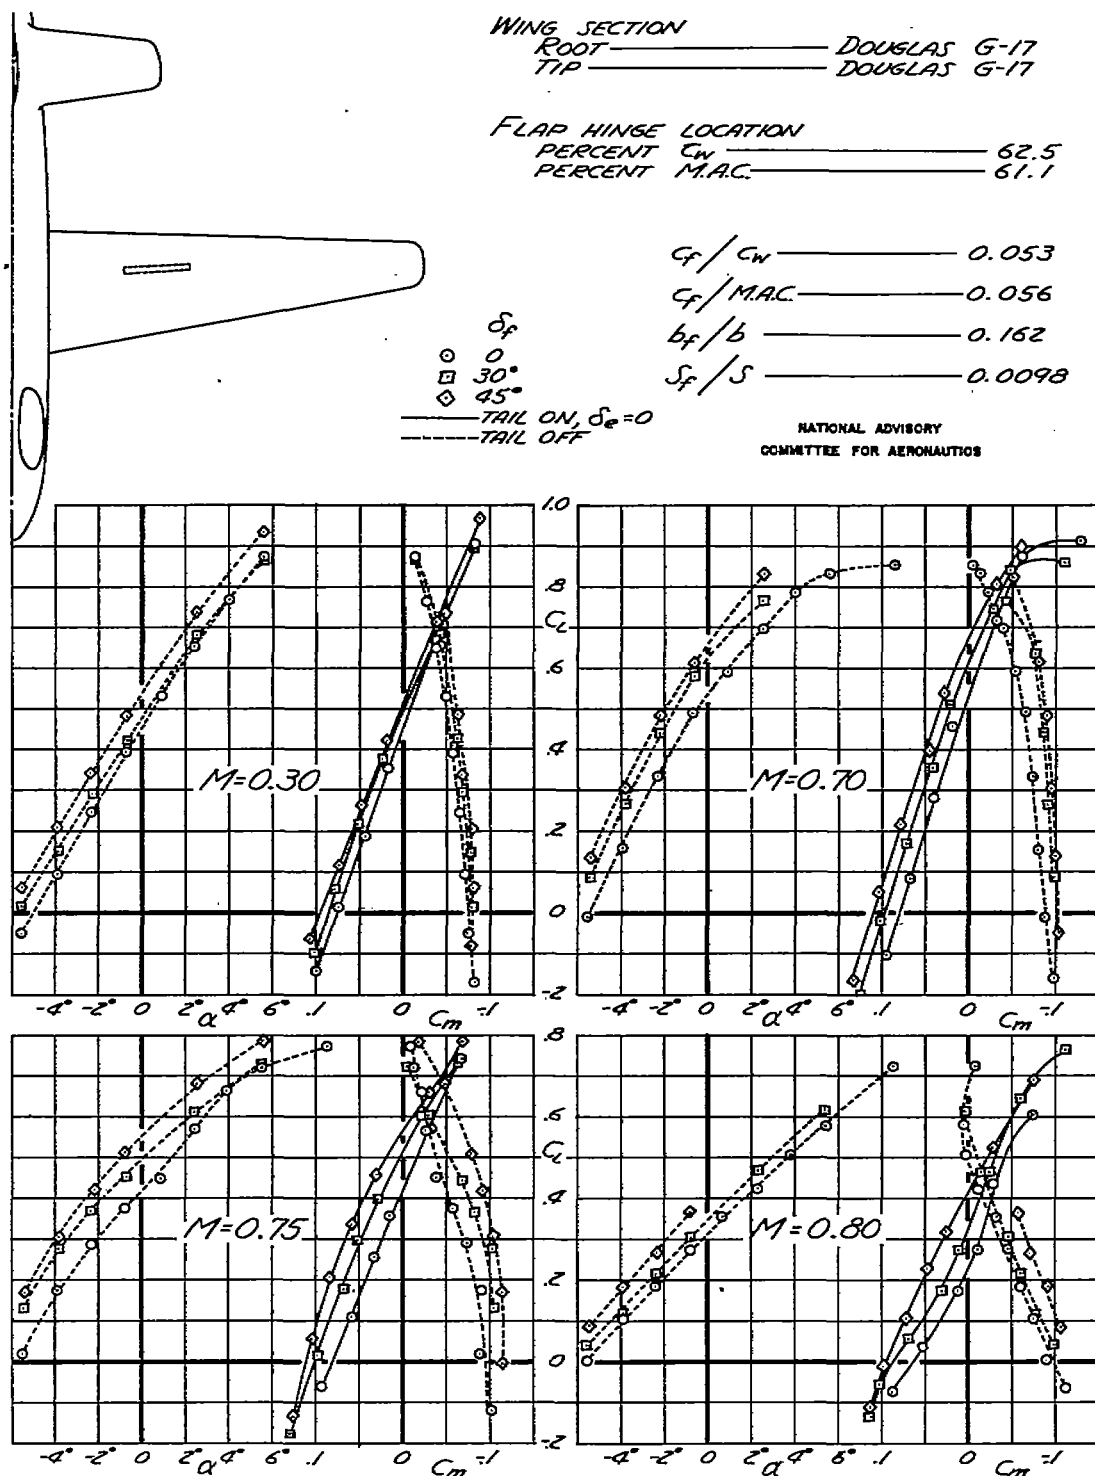 WING SECTION
ROOT DOUGLAS G-17
TIP DOUGLAS G-17
FLAP HINGE LOCATION
PERCENT Cw 62.5
PERCENT M.A.C. 61.1
cf/cw 0.053
cf/M.A.C. 0.056
bf/b 0.162
Sf/S 0.0098
δf
0
30°
45°
TAIL ON, δe=0
TAIL OFF
NATIONAL ADVISORY
COMMITTEE FOR AERONAUTICS
1.0
.8
CL
.6
.4
M=0.30 M=0.70
.2
0
-.2
-4° -2° 0 α 4° 6° .1 0 Cm -.1 -4° -2° 0 α 4° 6° .1 0 Cm -.1
.8
.6
CL
.4
M=0.75 M=0.80
.2
0
-.2
-4° -2° 0 α 4° 6° .1 0 Cm -.1 -4° -2° 0 α 4° 6° .1 0 Cm -.1